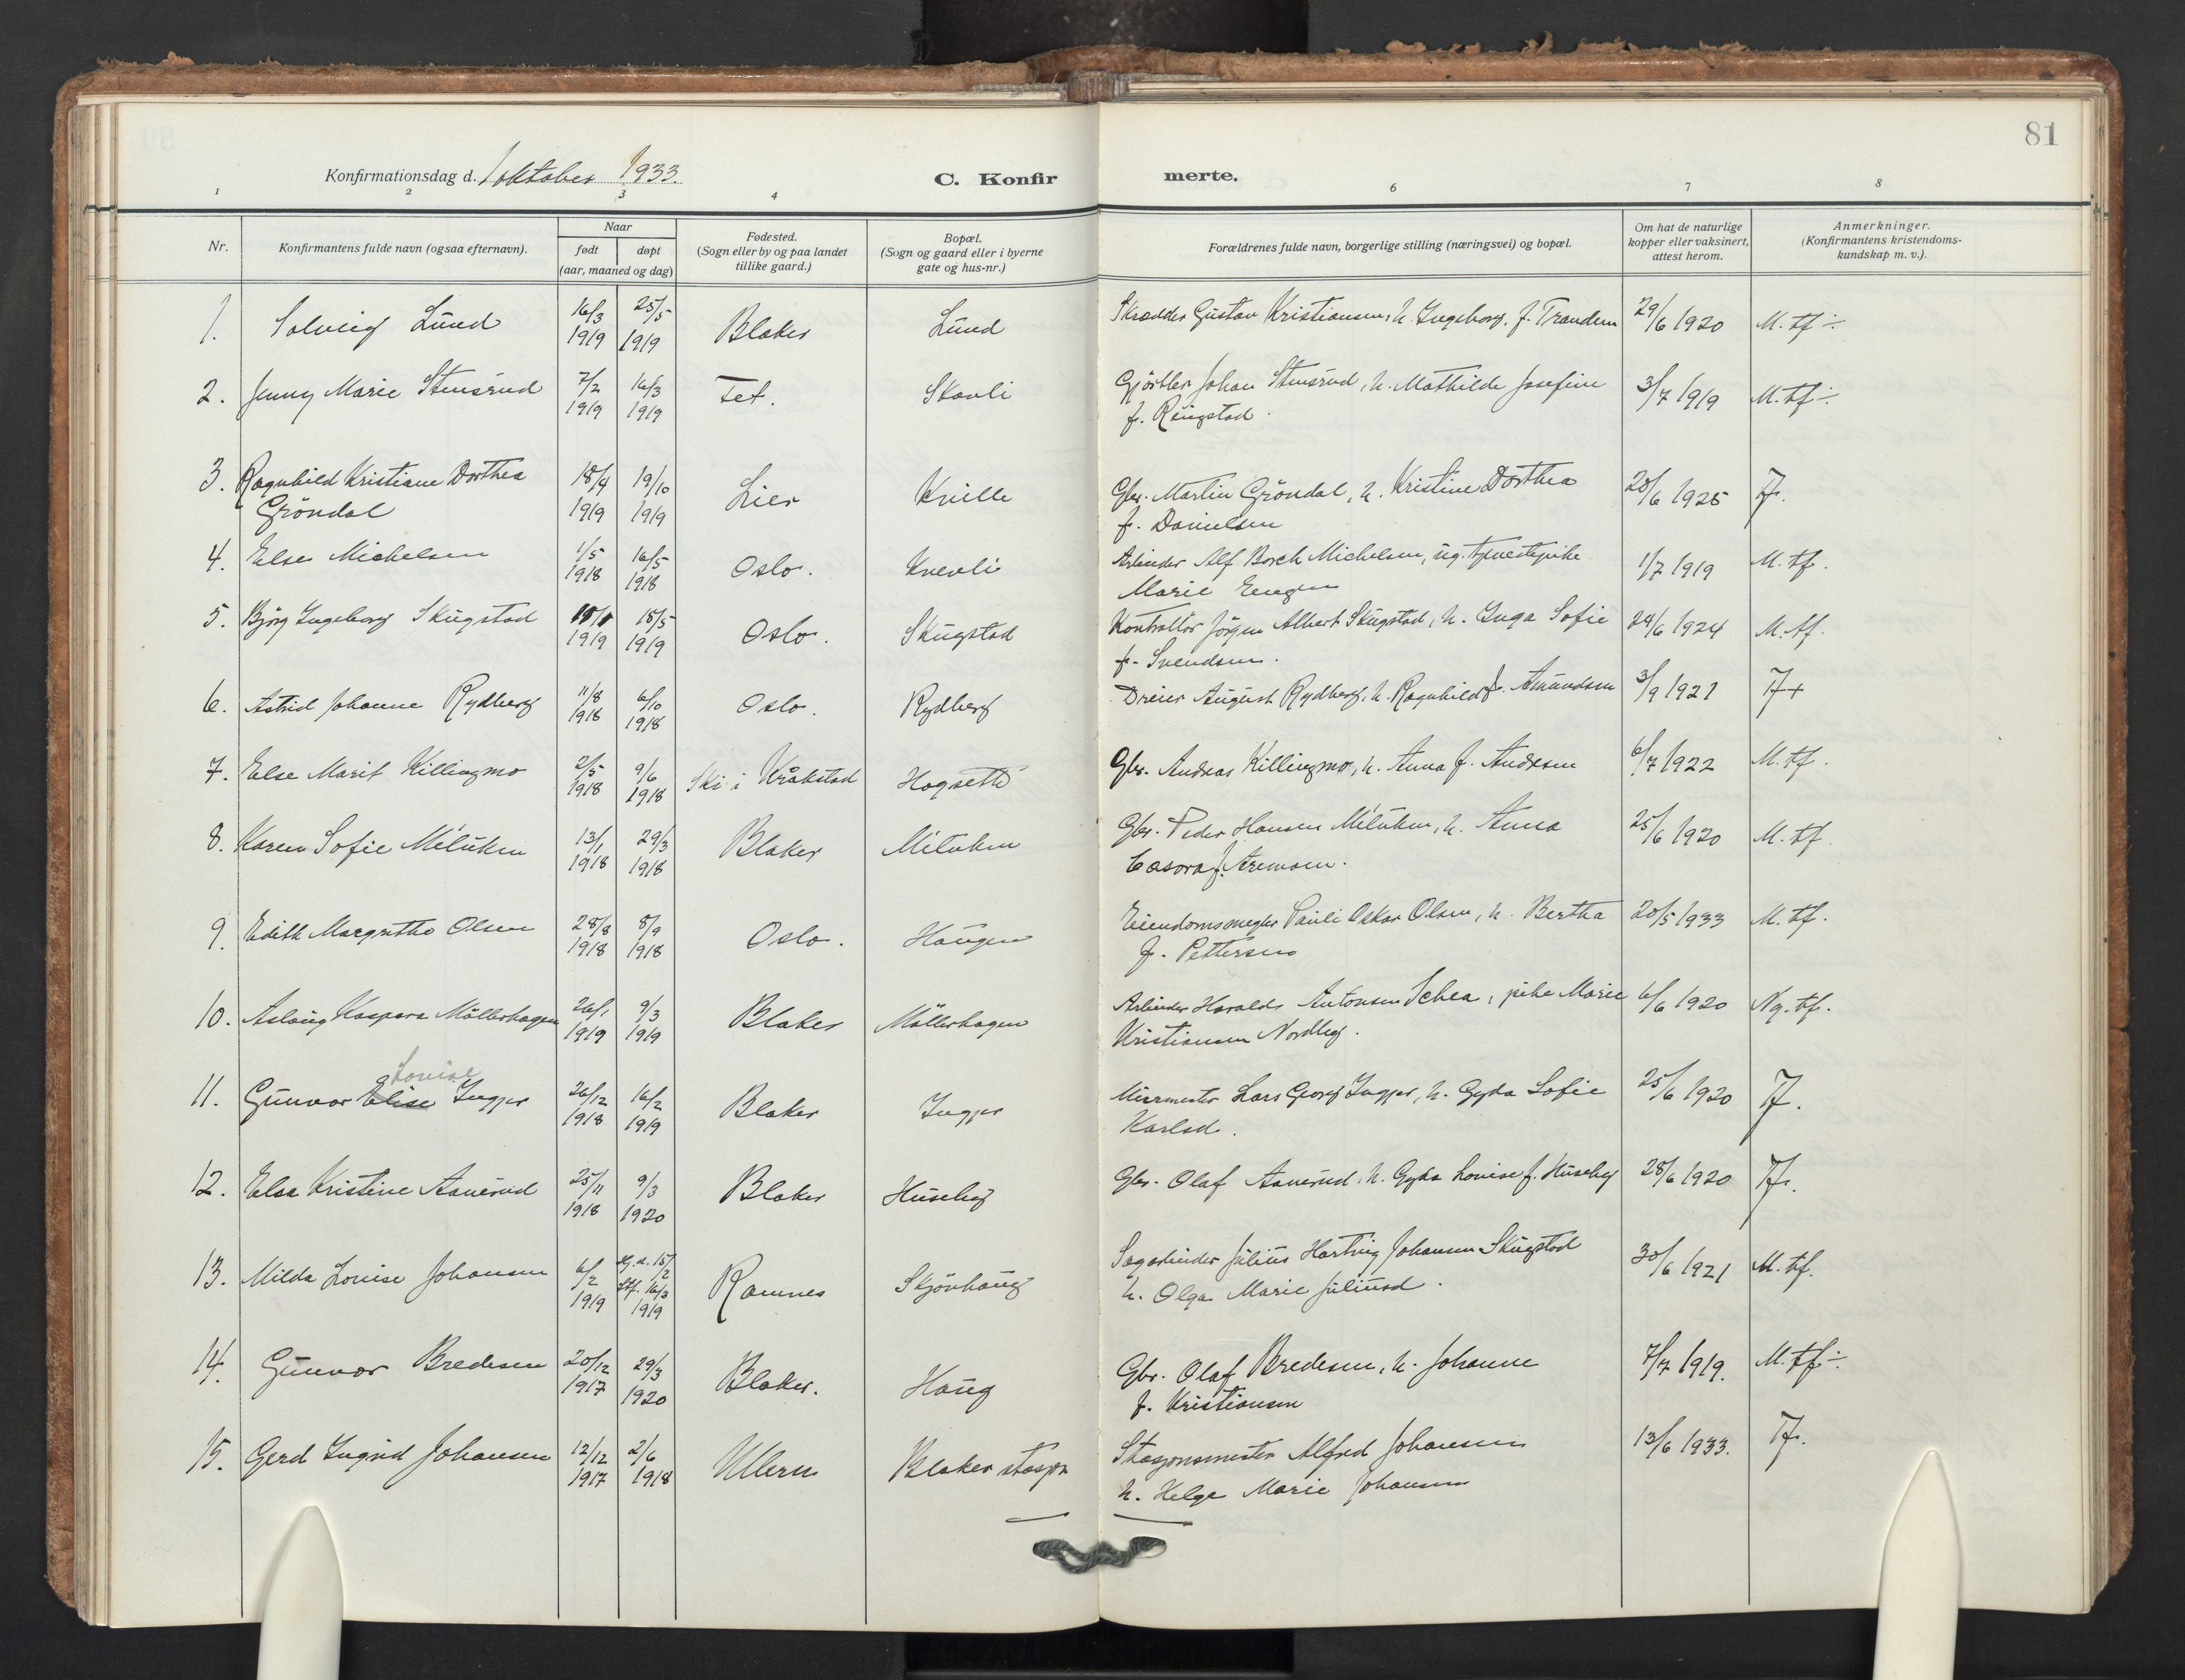 81
Konfirmationsdag d. 1 oktober 1933.
C. Konfirmerte.
1 2 3 4 6 7 8
Nr.
Konfirmantens fulde navn (ogsaa efternavn).
Naar
født døpt
(aar, maaned og dag)
Fødested.
(Sogn eller by og paa landet
tillike gaard.)
Bopæl.
(Sogn og gaard eller i byerne
gate og hus-nr.)
Forældrenes fulde navn, borgerlige stilling (næringsvei) og bopæl.
Om hat de naturlige
kopper eller vaksinert,
attest herom.
Anmerkninger.
(Konfirmantens kristendoms-
kundskap m. v.).
1. Solveig Lund 16/3 1919 25/5 1919 Blaker Lund Skrædder Gustav Kristiansen, h. Ingeborg, f. Trandem 29/6 1920 M. tf ÷
2. Jenny Marie Stensrud 7/2 1919 16/3 1919 Fet. Skovli Gjørtler Johan Stensrud, h. Mathilde Josefine
f. Ringstad. 3/7 1919 M. tf ÷.
3. Ragnhild Kristiane Dorthea
Gröndal 18/4 1919 19/10 1919 Lier Kville Gbr. Martin Gröndal, h. Kristine Dorthea
f. Danielsen 20/6 1925 Tf.
4. Else Michelsen 1/5 1918 16/5 1918 Oslo. Knevli Arbeider Alf Borch Michelsen, ug. tjenestepike
Marie Engen 1/7 1919 M. tf.
5. Björg Ingeborg Skugstad 1919 18/5 1919 Oslo. Skugstad Kontrollör Jörgen Albert Skugstad, h. Inga Sofie
f. Svendsen. 24/6 1924 M. tf.
6. Astrid Johanne Rydberg 11/8 1918 6/10 1918 Oslo. Rydberg Dreier August Rydberg, h. Ragnhild f. Amundsen 3/9 1921 Tf +
7. Else Marit Killingmo 2/5 1918 9/6 1918 Ski i Kråkstad Hogseth Gbr. Andreas Killingmo, h. Anna f. Andersen 6/7 1922 M. tf.
8. Karen Sofie Mëluken 13/1 1918 29/3 1918 Blaker Mëluken Gbr. Peder Hansen Mëluken, h. Anna
f. 25/6 1920 M. tf.
9. Edith Margrethe Olsen 28/8 1918 8/9 1918 Oslo. Haugen Eiendomsmegler Pauli Oskar Olsen, h. Bertha
f. Pettersen 20/5 1933 M. tf.
10. Aslaug Kaspara Möllerhagen 26/1 1919 9/3 1919 Blaker Möllerhagen Arbeider Harald Antonsen Schea, pike Marie
Kristiansen Nordby. 6/6 1920 Ng. tf.
Louise
11. Gunvor Elise Ingjer 26/12 1918 16/2 1919 Blaker Ingjer Murmester Lars Georg Ingjer, h. Gyda Sofie
Karlsd. 25/6 1920 Tf.
12. Elsa Kristine Aanerud 25/11 1918 9/3 1920 Blaker Huseby Gbr. Olaf Aanerud, h. Gyda Louise f. Huseby 28/6 1920 Tf.
13. Milda Louise Johansen 6/2 1919 Hj. d. 15/2 Stf. 16/3 1919 Ramnes Skjönhaug Sagarbeider Julius Hartvig Johansen Skugstad
h. Olga Marie Juliusd. 30/6 1921 M. tf.
14. Gunvor Bredesen 20/12 1917 29/3 1920 Blaker. Haug Gbr. Olaf Bredesen, h. Johanne
f. Kristiansen 7/7 1919. M. tf ÷.
15. Gerd Ingrid Johansen 12/12 1917 2/6 1918 Ullern Blaker stasjon Stasjonsmester Alfred Johansen
h. Helga Marie Johansen 13/6 1933. Tf.